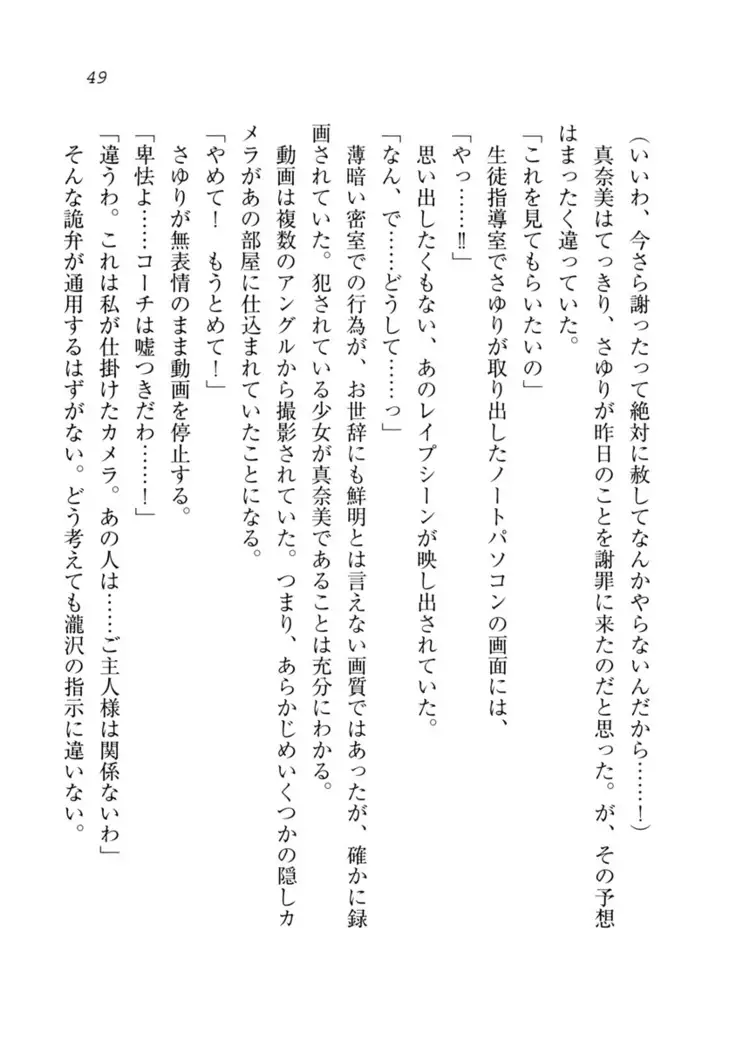 49
(いいわ、今さら謝ったって絶対に赦してなんかやらないんだから……!)
真奈美はてっきり、さゆりが昨日のことを謝罪に来たのだと思った。が、その予想
はまったく違っていた。
「これを見てもらいたいの」
生徒指導室でさゆりが取り出したノートパソコンの画面には、
「やっ……!!」
思い出したくもない、あのレイプシーンが映し出されていた。
「なん、で……どうして……っ」
薄暗い密室での行為が、お世辞にも鮮明とは言えない画質ではあったが、確かに録
画されていた。犯されている少女が真奈美であることは充分にわかる。
動画は複数のアングルから撮影されていた。つまり、あらかじめいくつかの隠しカ
メラがあの部屋に仕込まれていたことになる。
「やめて! もうとめて!」
さゆりが無表情のまま動画を停止する。
「卑怯よ……コーチは嘘つきだわ……!」
「違うわ。これは私が仕掛けたカメラ。あの人は……ご主人様は関係ないわ」
そんな詭弁が通用するはずがない。どう考えても瀧沢の指示に違いない。